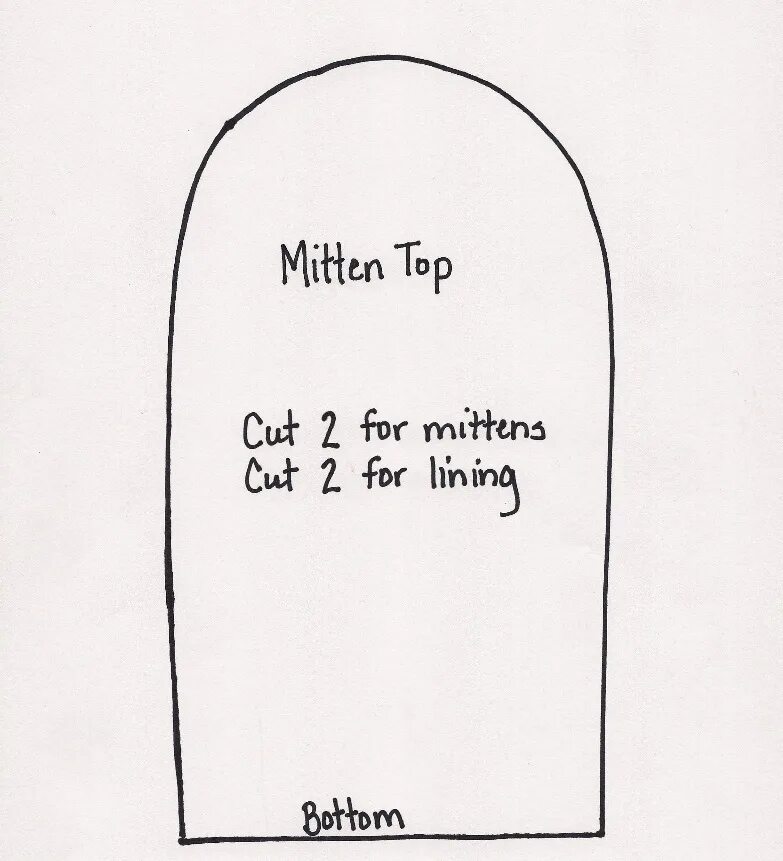 Mitten Top
Cut 2 for mittens
Cut 2 for lining
Bottom